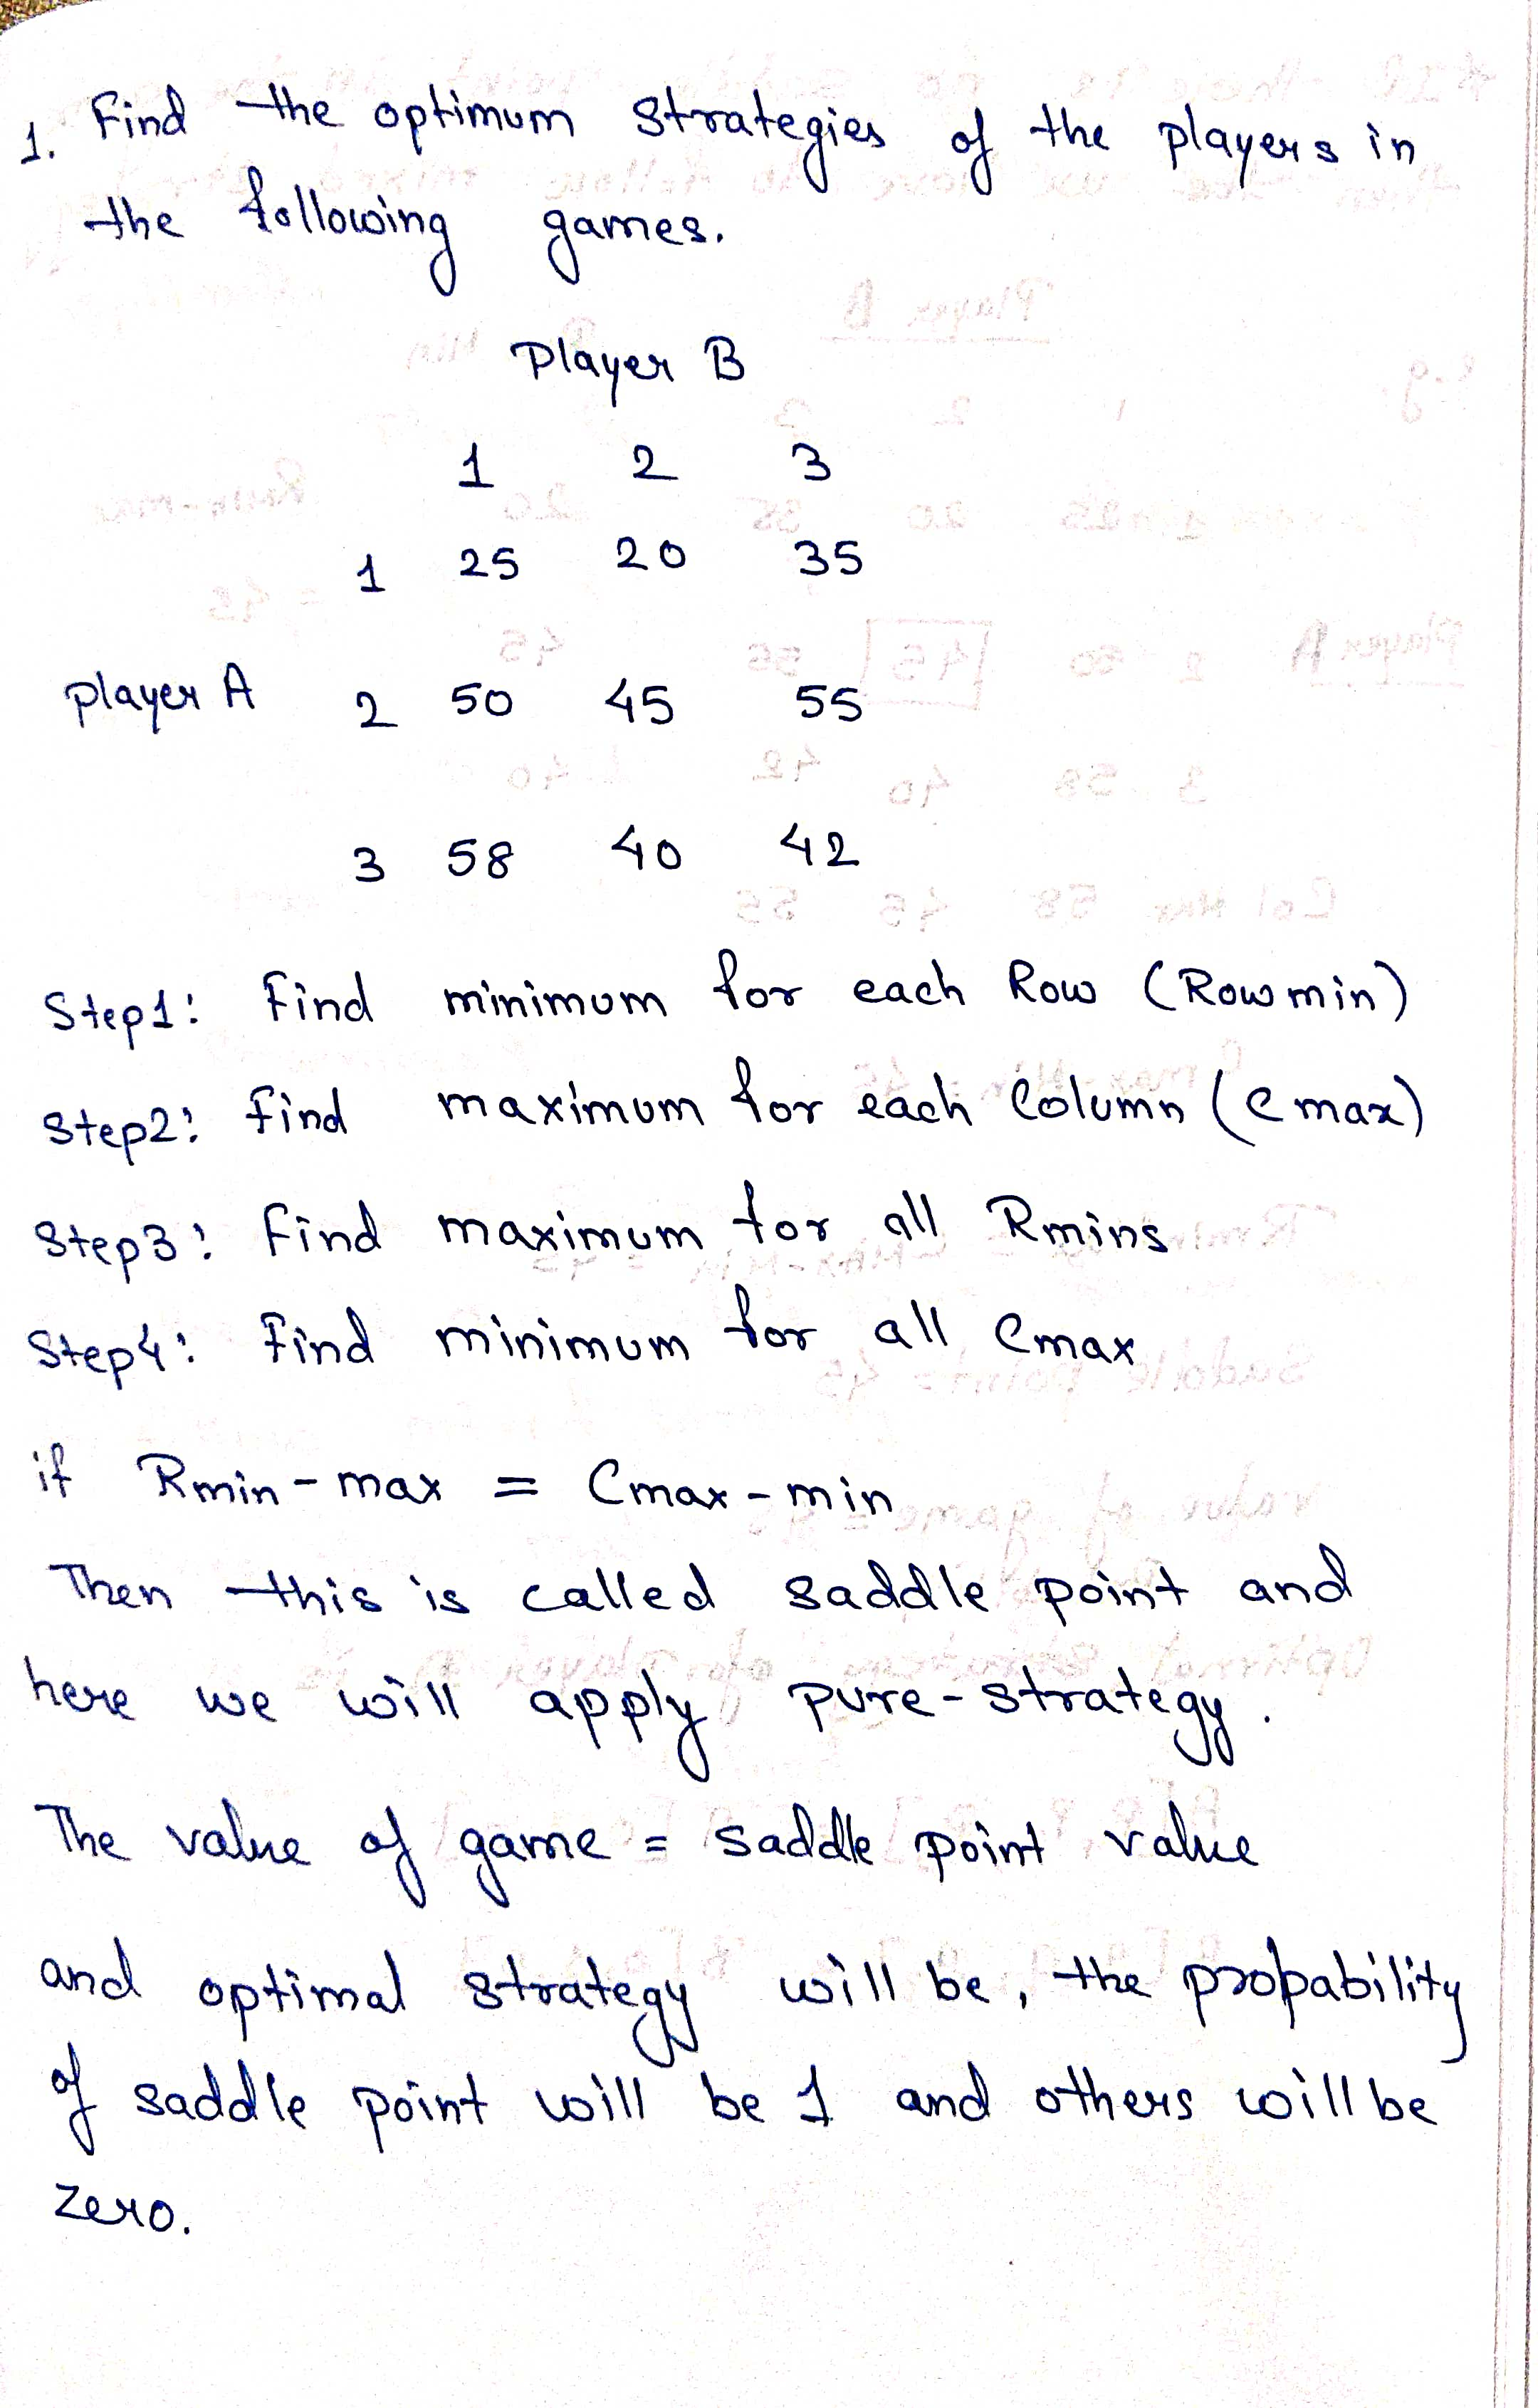 1. Find the optimum strategies of the players in
the following games.
Player B
1 2 3
1 25 20 35
Player A 2 50 45 55
3 58 40 42
Step1: Find minimum for each Row (Rowmin)
Step2: Find maximum for each Column (Cmax)
Step3: Find maximum for all Rmins
Step4: Find minimum for all Cmax
if Rmin-max = Cmax-min
Then this is called saddle point and
here we will apply pure-strategy.
The value of game = saddle point value
and optimal strategy will be, the probability
of saddle point will be 1 and others will be
zero.